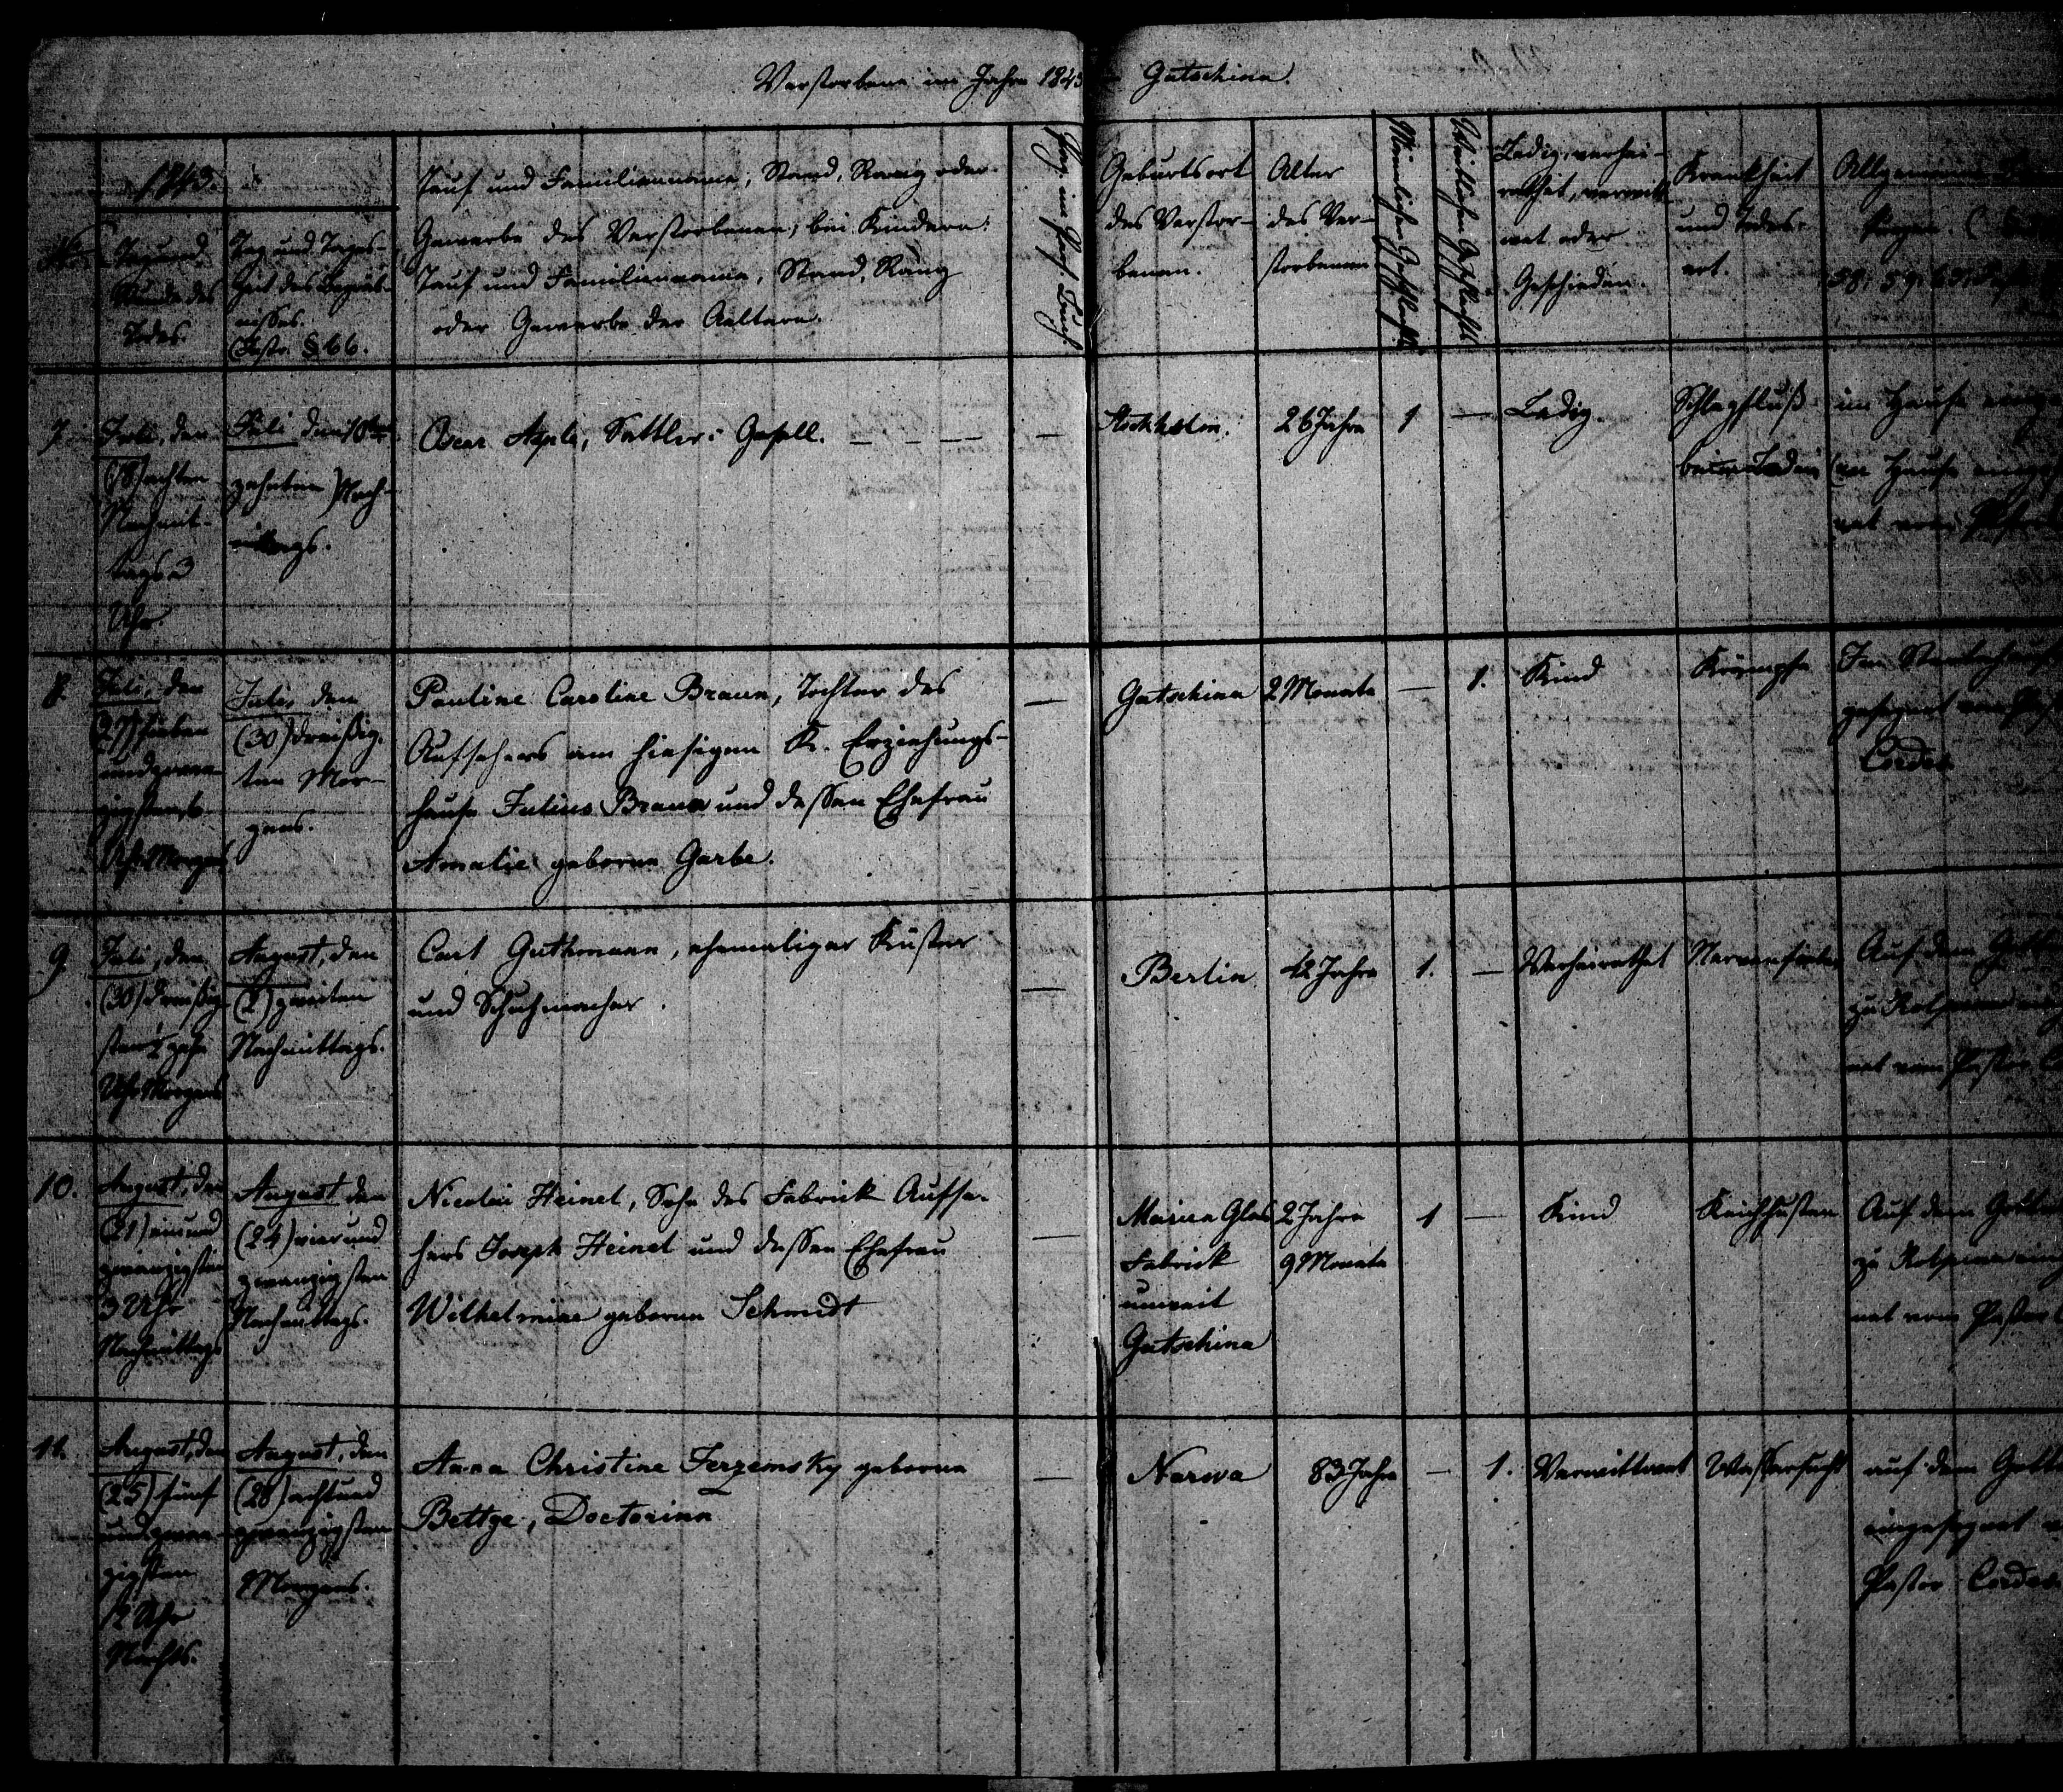 Verstorbene im Jahre 1843 Gatschina.
1843.
Stunde des
Todes.
Tag und Tages-
zeit des Begräb-
nisses.
(Instr. § 66.
Tauf und Familienname, Stand, Rang oder
Gewerbe des Verstorbenen; bei Kindern:
Tauf und Familienname, Stand, Rang
oder Gewerbe der Aeltern.
Geburtsort
des Verstor-
benen.
Alter
des Ver-
storbenen
Männlichen Geschlechts
Weiblichen Geschlechts
Ledig, verhei-
rathet, verwitt-
wet oder
Geschieden.
Krankheit
und Todes-
art.
7.
Juli, den
(8) achten
Nachmit-
tags 3
Uhr
Juli den 10ten
zehnten) Nach-
mittags.
Oscar, Sattler-Gesell. — — — —
—
Stockholm.
26 Jahre
1
—
Ledig.
Schlagfluß
beim Baden
im Hause
8.
Juli, den
(27) sieben
und zwan-
zigsten
Uhr Morgens
Juli, den
(30) dreißig-
ten Mor-
gens.
Pauline Caroline Braun, Tochter des
Aufsehers am hiesigen K. Erziehungs-
hause Julius Braun und dessen Ehefrau
Amalie geborne Garbe.
—
Gatschina
2 Monate
—
1.
Kind
Krämpfe
Cordes
9.
Juli, den
(30) dreißig-
sten ½ zehn
Uhr Morgens
August, den
(2) zweiten
Nachmittags.
Carl Guthmann, ehemaliger Küster
und Schuhmacher.
—
Berlin
42 Jahre
1.
—
Verheirathet
Nervenfieber
Auf dem
zu Kolpana
net vom Pastor
10.
August, den
(21) ein und
zwanzigsten
3 Uhr
Nachmittags
August den
(24) vier und
zwanzigsten
Nachmittags.
Nicolai Heinel, Sohn des Fabrick Aufse-
hers Joseph Heinel und dessen Ehefrau
Wilhelmine geborne Schmidt
—
Glas
Fabrick
unweit
Gatschina
2 Jahre
9 Monate
1
—
Kind
Keichhusten
Auf dem
zu Kolpana
net vom Pastor
11.
August, den
(25) fünf
und zwan-
zigsten
12 Uhr
Nachts.
August, den
(28) acht und
zwanzigsten
Morgens.
Anna Christine Jerzemsky geborne
Bettge, Doctorinn
—
Narwa
83 Jahre
—
1.
Verwittwet
Wassersucht
auf dem
eingesegnet
Pastor Cordes